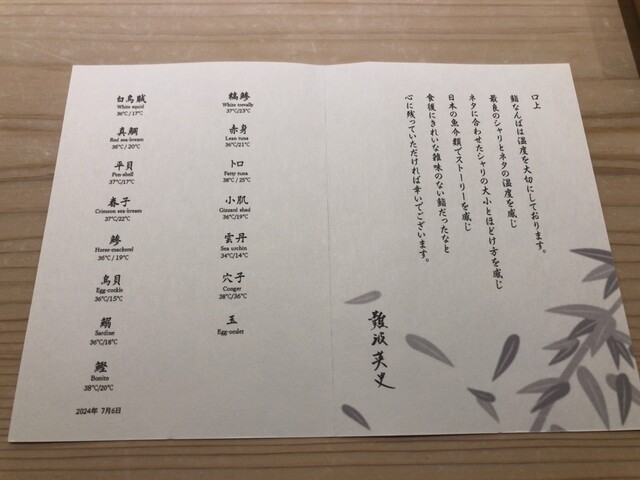 白烏賊
White squid
36℃/17℃
真鯛
Red sea-bream
36℃/20℃
平貝
Pen-shell
37℃/17℃
春子
Crimson sea-bream
37℃/22℃
鯵
Horse-mackerel
36℃/19℃
鳥貝
Egg-cockle
36℃/15℃
鰯
Sardine
36℃/18℃
鰹
Bonito
38℃/20℃
2024年 7月6日
縞鯵
White trevally
37℃/23℃
赤身
Lean tuna
36℃/21℃
トロ
Fatty tuna
38℃/25℃
小肌
Gizzard shad
36℃/19℃
雲丹
Sea urchin
34℃/14℃
穴子
Conger
38℃/36℃
玉
Egg-omlet
口上
鮨なんばは温度を大切にしております。
最良のシャリとネタの温度を感じ
ネタに合わせたシャリの大小とほどけ方を感じ
日本の魚介類でストーリーを感じ
食後にきれいな雑味のない鮨だったなと
心に残っていただければ幸いでございます。
難波英史